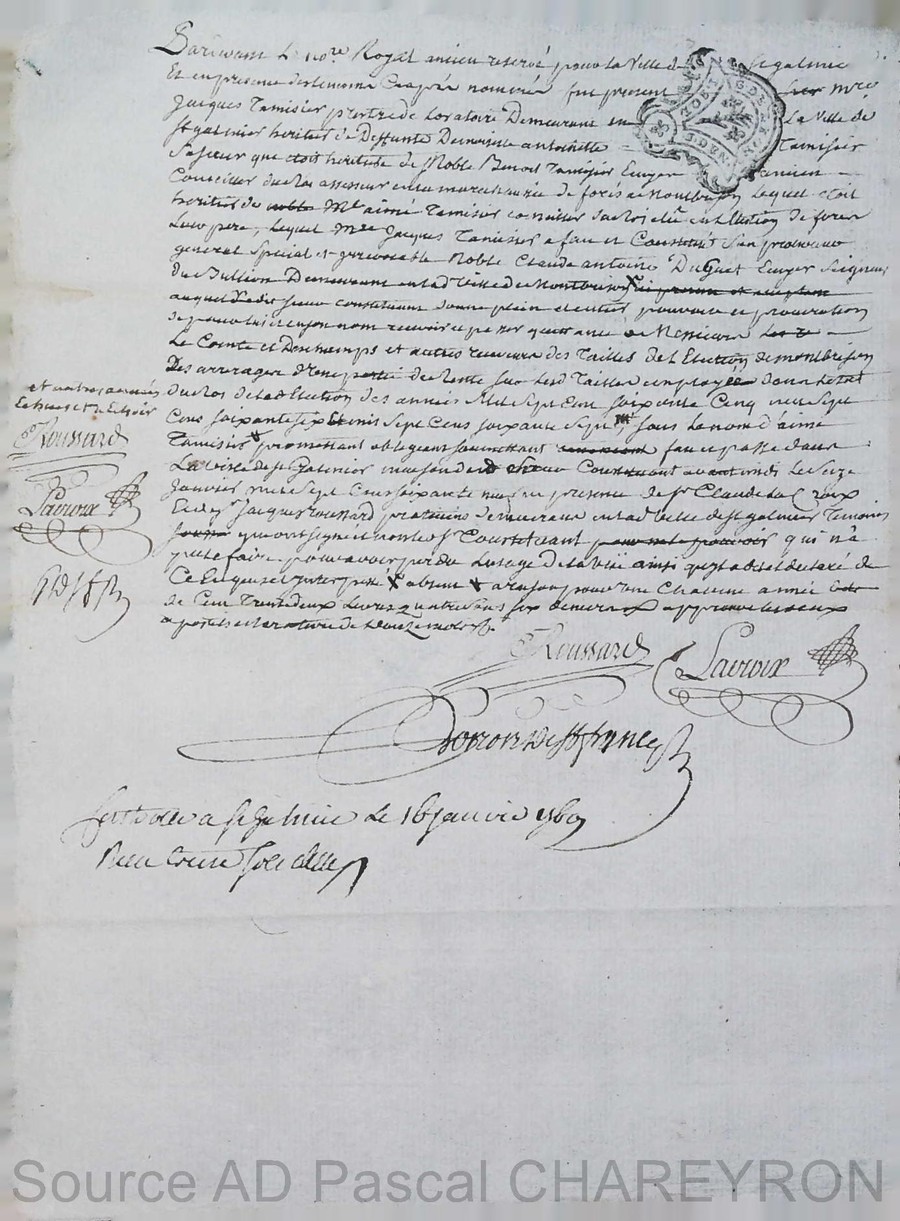 Pardevant le no.re Royal ancien reservé pour la Ville de St galmier
Et en presence des temoins cy après nommés fut present Mre
Jacques Tamisier prestre de loratoire Demeurant en La Ville de
St galmier heritier de Deffunte Demoiselle antoinette Tamisier
Sa soeur que etoit heritiere de Noble Benoit Tamisier Ecuyer ancien
Conseiller du Roi assesseur en la marechaussée de forés a Montbrison Lequel etoit
heritier de noble Mre aimé Tamisier conseiller du Roi elu en lElection de forés
Leur pere, Lequel Mre Jacques Tamisier a fait et Constitué Son procureur
general Special et irrevocable Noble Claude antoine DuGuet Ecuyer Seigneur
du Bullion Demeurant en lad Ville de Montbrison
auquel Ledit sieur constituant donne plein et entier pouvoir et procuration
de pour lui et en son nom recevoir et passer quittance a Messieurs
Le Comte et Deschamps et autres receveurs des Tailles de lElection de montbrison
Des arrerages d'une partie de rente sur lesd Tailles employée dans letat
du Roi de lad Election des années Mil Sept Cent Soixante Cinq mil Sept
Cens Soixante Six Et mil Sept Cens Soixante Sept, sous le nom d'aimé
Tamisier promettant obligeant soumettant fait et passé dans
La Ville de St Galmier maison dud Sieur Constituant avant midi Le Seize
Janvier mil Sept Cens Soixante neuf en presence de Sr Claude La Croix
Et de Sr Jacques Roussard praticiens demeurans en lad Ville de St galmier Temoins
qui ont signé et non led Sr Constituant pour ne le pouvoir qui n'a
pu le faire pour avoir perdu Lusage de la vüe ainsi qu'il a dit et declaré de
Ce Enquis et Interpellé X absent X a raison pour une Chacune année
de Cent Trente deux Livres quatre sols six deniers X approuvé les deux
apostiles et la rature de douze mots
et autres années
Echues et a Echoir
Roussard
Lacroix
Roussard
Lacroix
Controllé a St Galmier le 16 janvier 1769
Receu treize sols
Source AD Pascal CHAREYRON